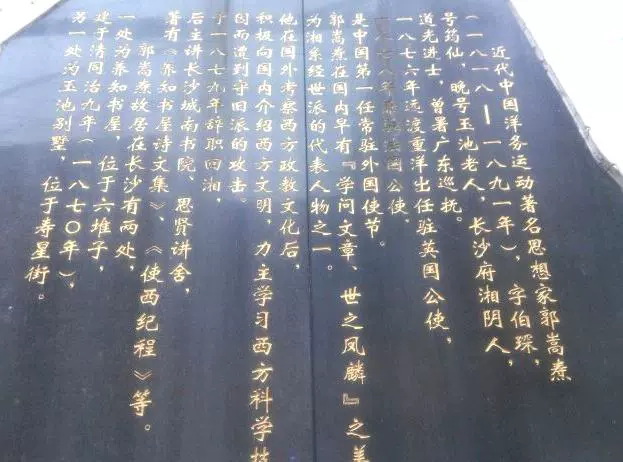 近代中国洋务运动著名思想家郭嵩焘
（一八一八——一八九一年），字伯琛，
号药仙，晚号玉池老人，长沙府湘阴人，
道光进士，曾署广东巡抚。
一八七六年远渡重洋出任驻英国公使，
一八七八年兼驻法国公使，
是中国第一任常驻外国使节。
郭嵩焘在国内早有『学问文章、世之凤麟』之美
为湘系经世派的代表人物之一。
他在国外考察西方政教文化后，
积极向国内介绍西方文明，力主学习西方科学技
因而遭到守旧派的攻击。
于一八七九年辞职回湘，
后主讲长沙城南书院、思贤讲舍，
著有《养知书屋诗文集》、《使西纪程》等。
郭嵩焘故居在长沙有两处，
一处为养知书屋，位于六堆子，
建于清同治九年（一八七〇年），
另一处为玉池别墅，位于寿星街。